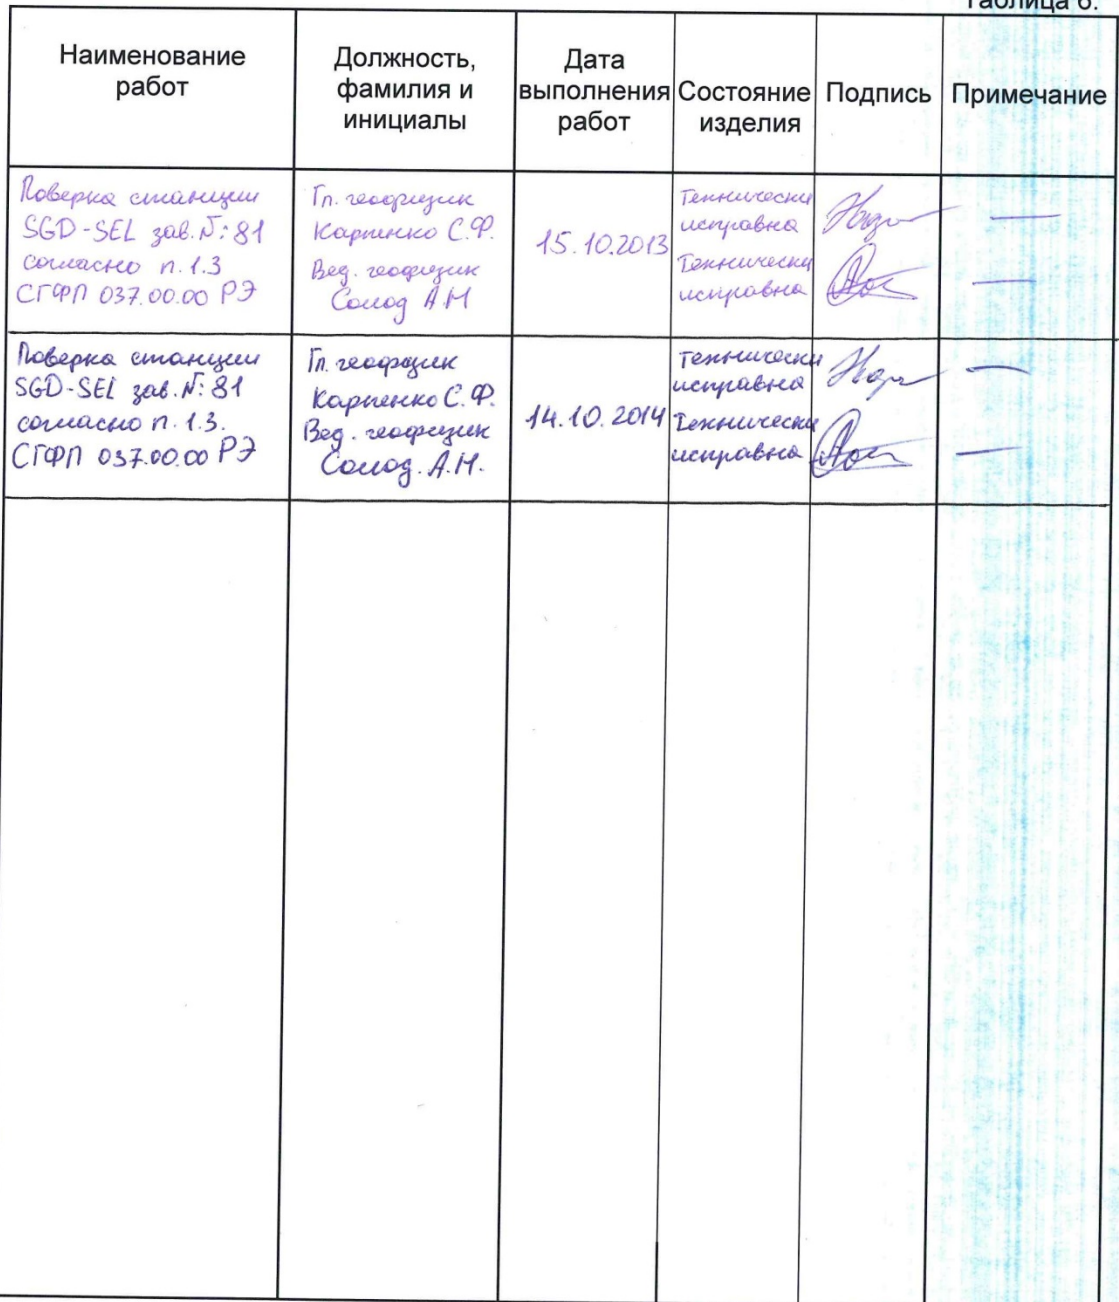 Таблица 6.
Наименование
работ
Должность,
фамилия и
инициалы
Дата
выполнения
работ
Состояние
изделия
Подпись
Примечание
Поверка станции
SGD-SEL зав. №: 81
согласно п. 1.3
СГФП 037.00.00 РЭ
Гл. геофизик
Карпенко С.Ф.
Вед. геофизик
Солод А.Н
15.10.2013
Технически
исправна
Технически
исправна
—
—
Поверка станции
SGD-SEL зав. №: 81
согласно п. 1.3.
СГФП 037.00.00 РЭ
Гл. геофизик
Карпенко С.Ф.
Вед. геофизик
Солод. А.Н.
14.10.2014
Технически
исправна
Технически
исправна
—
—